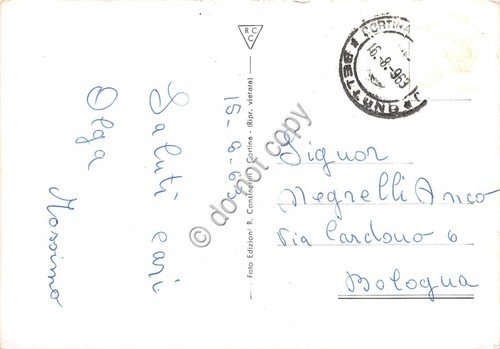 Saluti cari
Olga
Massimo
15-8-63
R
C C
Foto Edizioni R. Constantini - Cortina - (Ripr. vietata)
CORTINA
16.-8.-963
BELLUNO
Signor
Negrelli Anco
Via Cardono 6
Bologna
do not copy